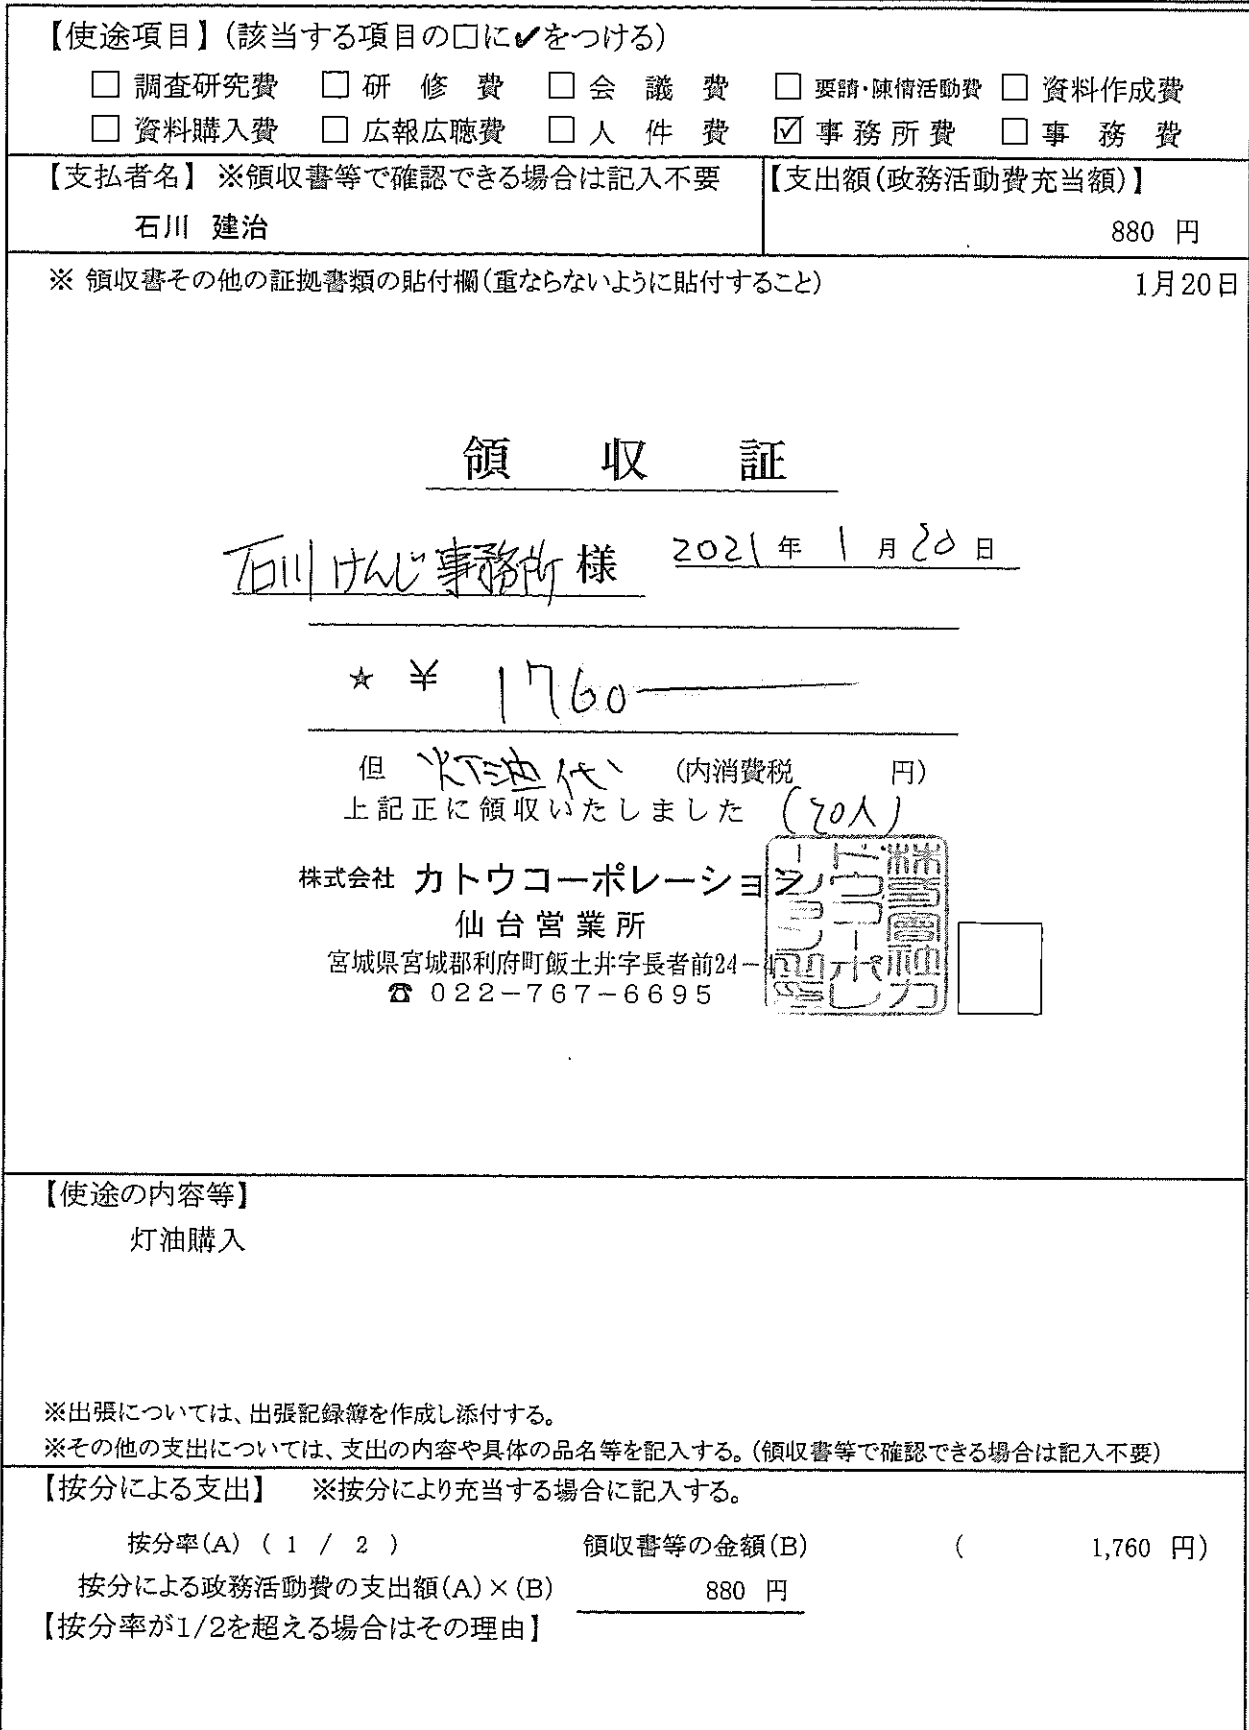 【使途項目】(該当する項目の□に✔をつける)
□ 調査研究費 □ 研修費 □ 会議費 □ 要請・陳情活動費 □ 資料作成費
□ 資料購入費 □ 広報広聴費 □ 人件費 ☑ 事務所費 □ 事務費
【支払者名】 ※領収書等で確認できる場合は記入不要
石川 建治
【支出額(政務活動費充当額)】
880 円
※ 領収書その他の証拠書類の貼付欄(重ならないように貼付すること) 1月20日
領収証
石川けんじ事務所 様 2021年 1月20日
★ ¥ 1760
但 灯油代 (内消費税 円)
上記正に領収いたしました
株式会社 カトウコーポレーション
仙台営業所
宮城県宮城郡利府町飯土井字長者前24-
☎ 022-767-6695
【使途の内容等】
灯油購入
※出張については、出張記録簿を作成し添付する。
※その他の支出については、支出の内容や具体の品名等を記入する。(領収書等で確認できる場合は記入不要)
【按分による支出】 ※按分により充当する場合に記入する。
按分率(A) ( 1 / 2 ) 領収書等の金額(B) ( 1,760 円)
按分による政務活動費の支出額(A)×(B) 880 円
【按分率が1/2を超える場合はその理由】